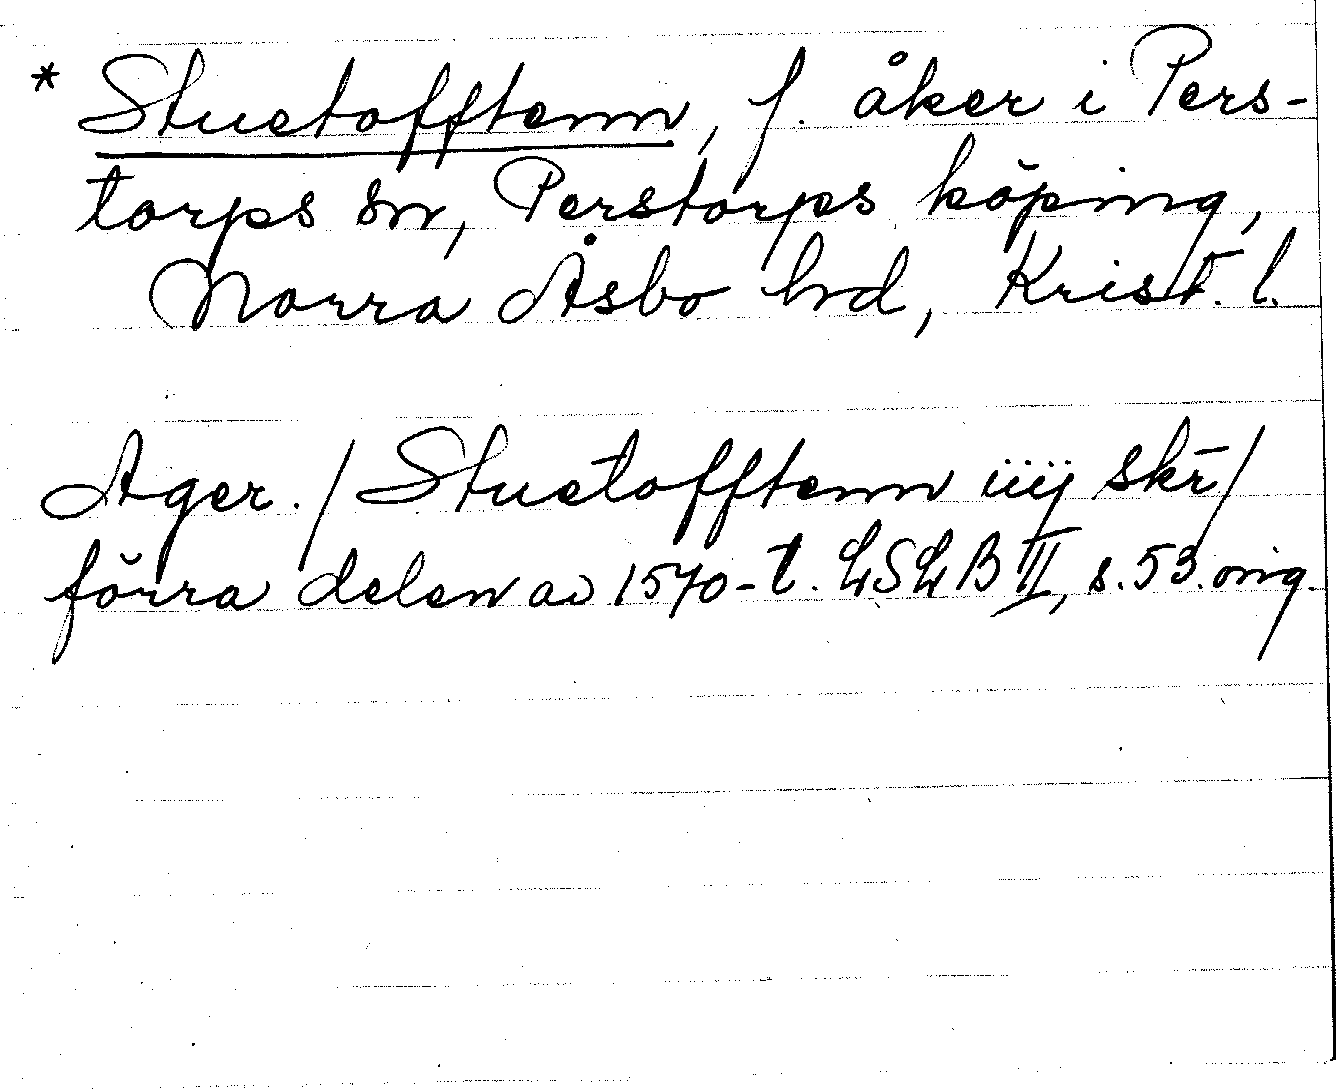 * Stuetofftenn, f. åker i Pers-
torps sn, Perstorps köping,
Norra Åsbo hd, Krist. l.
Ager. / Stuetofftenn iiij skr /
förra delen av 1570-t. LSLB III, s. 53. orig.